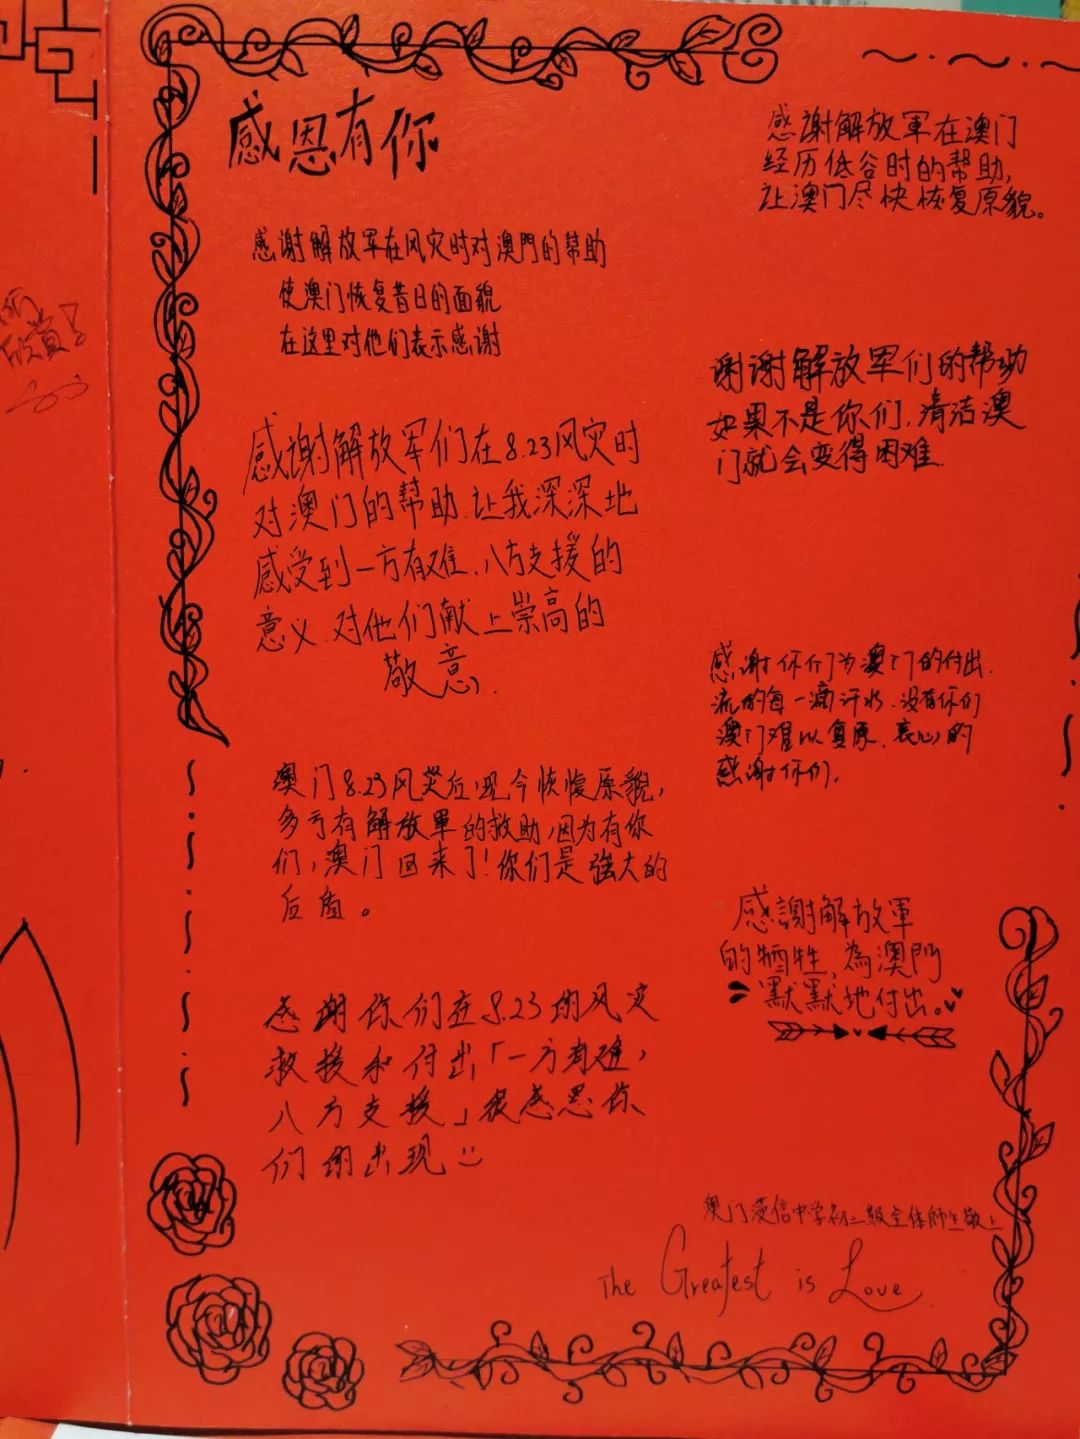 欣賞!
感恩有你
感谢解放军在风灾时对澳門的帮助
使澳门恢复昔日的面貌
在这里对他们表示感谢
感谢解放军们在8.23风灾时
对澳门的帮助.让我深深地
感受到一方有难、八方支援的
意义.对他们献上崇高的
敬意.
澳门8.23风灾后,现今恢復原貌,
多亏有解放軍的救助,因为有你
们,澳门回来了!你们是強大的
后盾。
感谢你们在8.23的风灾
救援和付出「一方有难,
八方支援」很感恩你
们的出现
感谢解放軍在澳门
经历低谷时的帮助,
让澳门尽快恢复原貌。
谢谢解放军们的帮助
如果不是你们,清洁澳
门就会变得困难.
感谢你们为澳门的付出.
流的每一滴汗水.没有你们
澳门难以复原.衷心的
感谢你们.
感謝解放軍
的犧牲,為澳門
默默地付出。
澳门浸信中学初二級全体師生敬上
The Greatest is Love